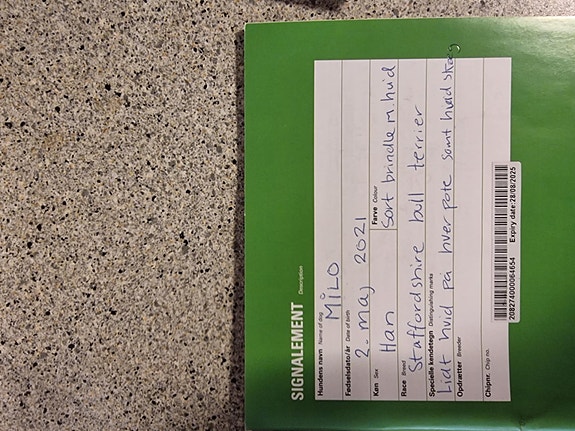 SIGNALEMENT Description
Hundens navn Name of dog
MILO
Fødselsdato/år Date of birth
2. maj 2021
Køn Sex Farve Colour
Han Sort brindle m. hvid
Race Breed
Staffordshire bull terrier
Specielle kendetegn Distinguishing marks
Lidt hvid på hver pote samt hvid
Opdrætter Breeder
Chipnr. Chip no.
208274000064654 Expiry date:28/08/2025